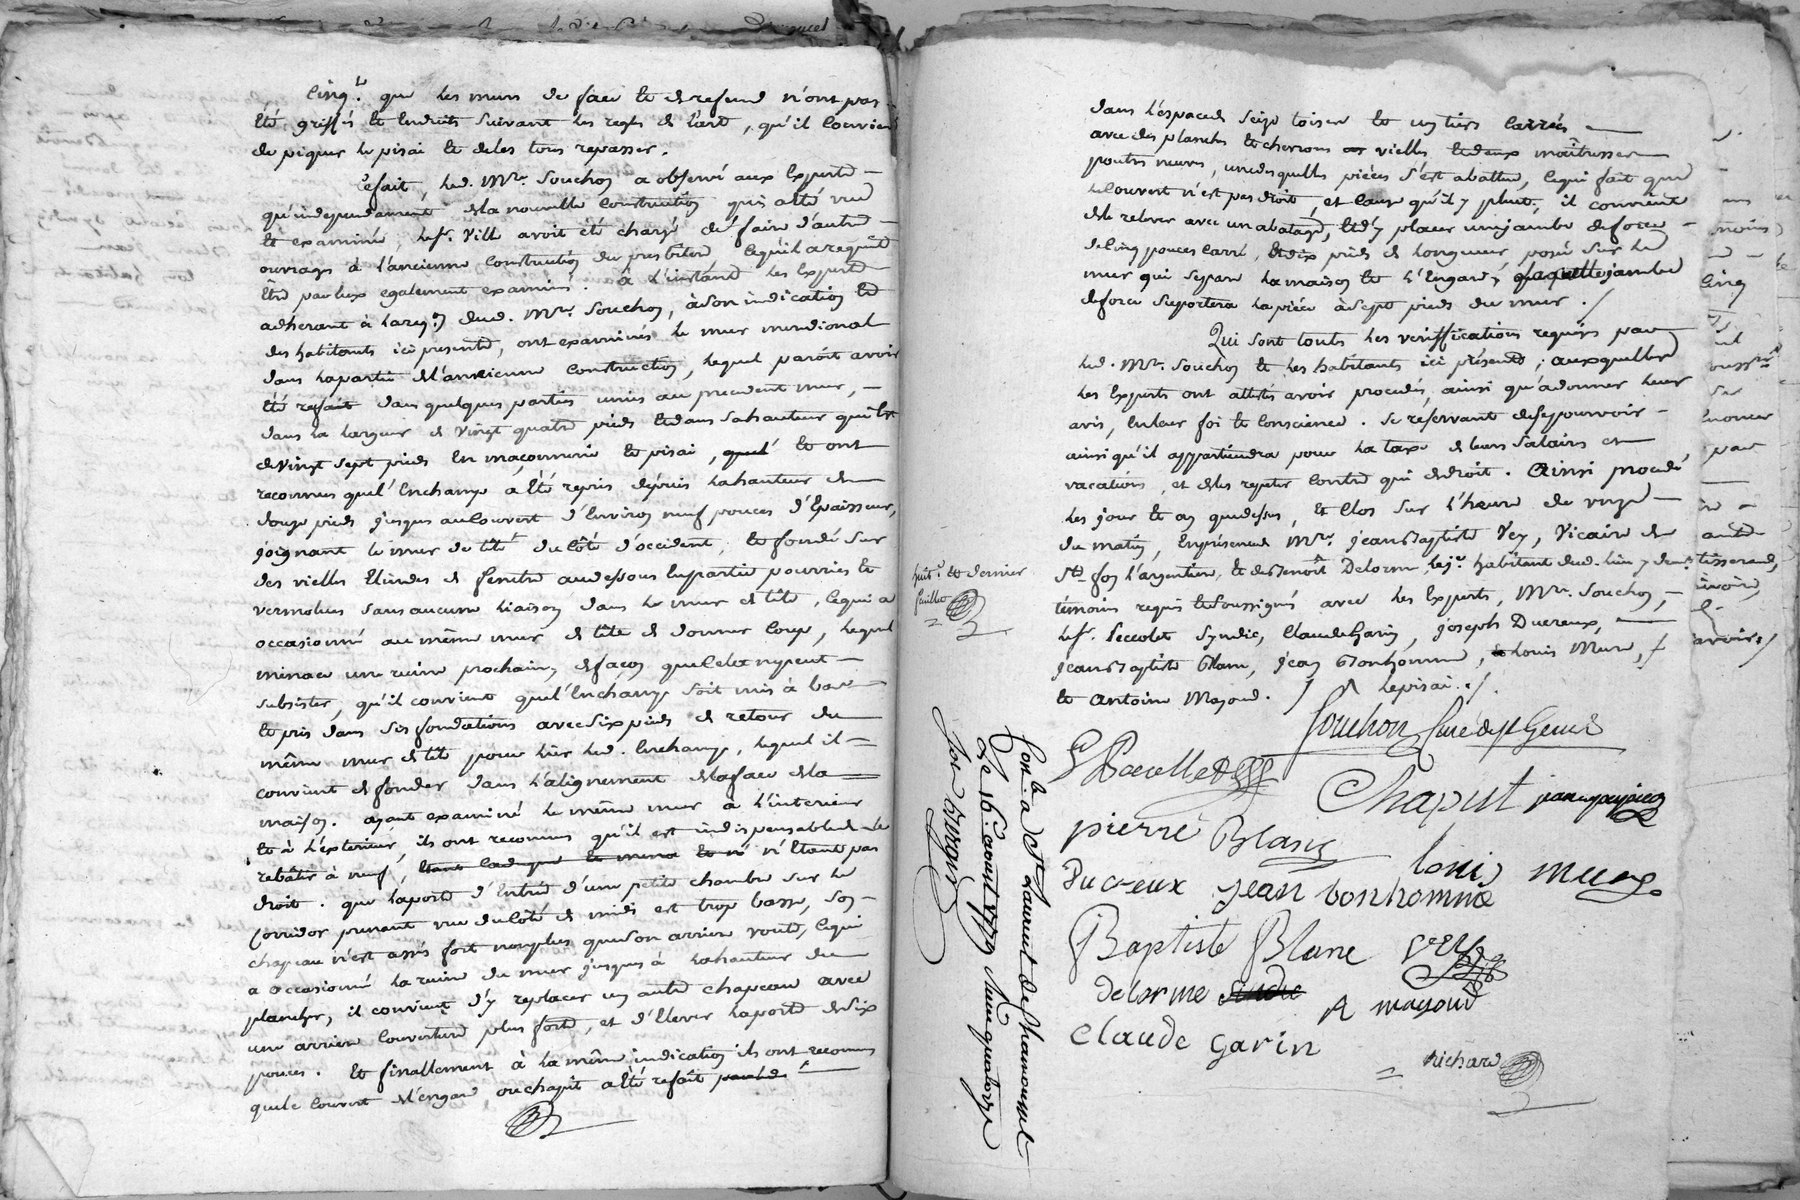 Cinq.t que les murs de face et de refend n'ont pas
été griffés et enduits suivant les regles de l'art, qu'il convient
de piquer le pisai et de les tous repasser.
Cefait, led. Mre. Souchon a observé aux Experts
qu'independament de la nouvelle construction qui a été vue
et examinée, le sr. Vill avoit été chargé de faire d'autre
ouvrages à l'ancienne construction du presbitere, lequel il a requi
être par eux egalement examinés. à l'instant les Experts
adhérant à la req.on dud. Mre. Souchon, à son indication et
des habitants ici presents, ont examinés le mur meridional
dans la partie de l'ancienne construction, lequel paroit avoir
été refait dans quelques parties unies au precedent mur,
dans la largeur de vingt quatre pieds et dans sa hauteur qui est
de vingt sept pieds en maçonnerie et pisai, et ont
reconnus que l'Enchange a été repris depuis la hauteur de
douze pieds jusques au couvert d'Environ neuf pouces d'Epaisseur,
joignant le mur de tête du côté d'occident, et fondé sur
des vielles Etindes de fenetre au dessous en partie pourries et
vermolues sans aucune liaison dans le mur de tête, ce qui a
occasionné au même mur de tête de donner coup, lequel
minace une ruine prochaine, de façon que cela ny peut
subsister, qu'il convient que l'Enchange soit mis à bas
et pris dans ses fondations avec six pieds de retour du
même mur de tête pour lier led. Enchange, lequel il
convient de fonder dans l'alignement de la face de la
maison. ayant examiné le même mur à l'interieur
et à l'exterieur, ils ont reconnus qu'il est indispensable de le
rebâtir à neuf, n'étant pas
droit. que la porte d'Entrée d'une petite chambre sur le
Corridor prenant vue du côté de midi est trop basse, son
chapeau n'est assés fort non plus que son arriere voute, ce qui
a occasionné la ruine du mur jusques à la hauteur du
plancher, il convient d'y replacer un autre chapeau avec
une arriere couverture plus forte, et d'Elever la porte de six
pouces. Et finallement à la même indication ils ont reconnus
que le couvert de l'engar ou chapit a été refait
dans l'espace de seize toises et un tiers carrées
avec des planches et chevrons vielles, et deux maitresses
poutres neuves, une desquelles pieces s'est abattue, ce qui fait que
le couvert n'est pas droit, et cause qu'il y pleut, il convient
de le relever avec un abatage, et d'y placer une jambe de force
de cinq pouces carré, et dix pieds de longueur posée sur le
mur qui separe la maison et l'Engard, laquelle jambe
de force suportera la piece à sept pieds du mur ./
Qui sont touts les veriffications requises par
led. Mre. Souchon et les habitants ici présents; auxquelles
les Experts ont attestés avoir procedés, ainsi qu'à donner leur
avis, en leur foi et conscience. Se reservant de se pourvoir
ainsi qu'il appartiendra pour la taxe de leurs Salaires et
vacations, et de les repeter contre qui de droit. Ainsi procedé
les jour et an que dessus, et clos sur l'heure de onze
du matin, en presence Mre. jean Baptiste Vey, Vicaire de
Ste. foy l'argentiere, et de Benoît Delorme, lejr. habitant dud. lieu y dem.t
témoins requis et soussignés avec les Experts, Mre. Souchon,
le sr. Peccolet Syndic, Claude Garin, joseph Ducreux,
jean Baptiste Blanc, jean Bonhomme, Louis Mure,
et Antoine Mayoud. / ^ le pisai ./
huit.e et dernier
feuillet
Souchon Curé de Ste Genis
Chaput
pierre Blanc
Ducreux jean bonhomme
louis mure
Baptiste Blanc Vey
delorme
A mayoud
Claude Garin
richard
Con.lé à St. Laurent de Chamousset
Le 16. aoust 1779